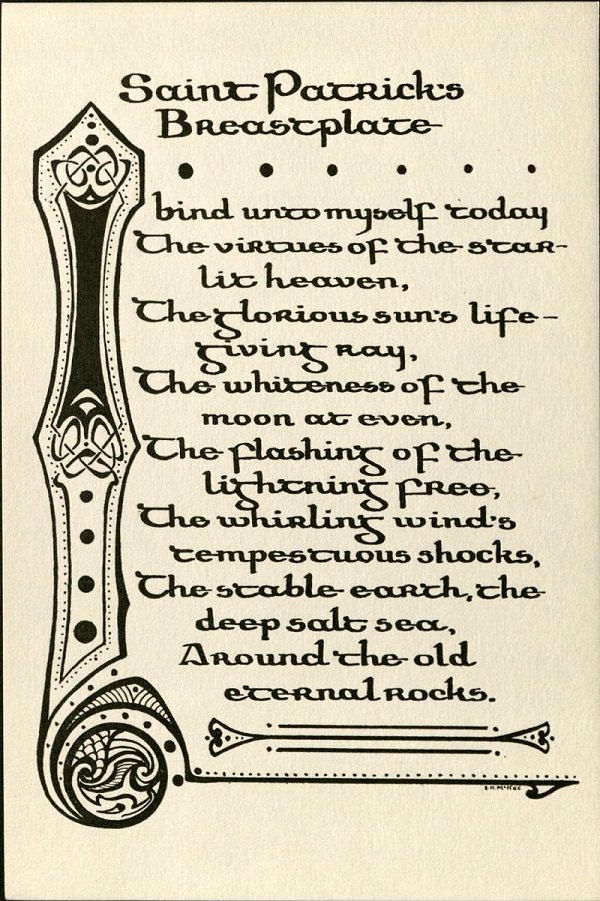 Saint Patrick's
Breastplate
I bind unto myself today
The virtues of the star-
lit heaven,
The glorious sun's life-
giving ray,
The whiteness of the
moon at even,
The flashing of the
lightning free,
The whirling wind's
tempestuous shocks,
The stable earth, the
deep salt sea,
Around the old
eternal rocks.
E.H. McKee